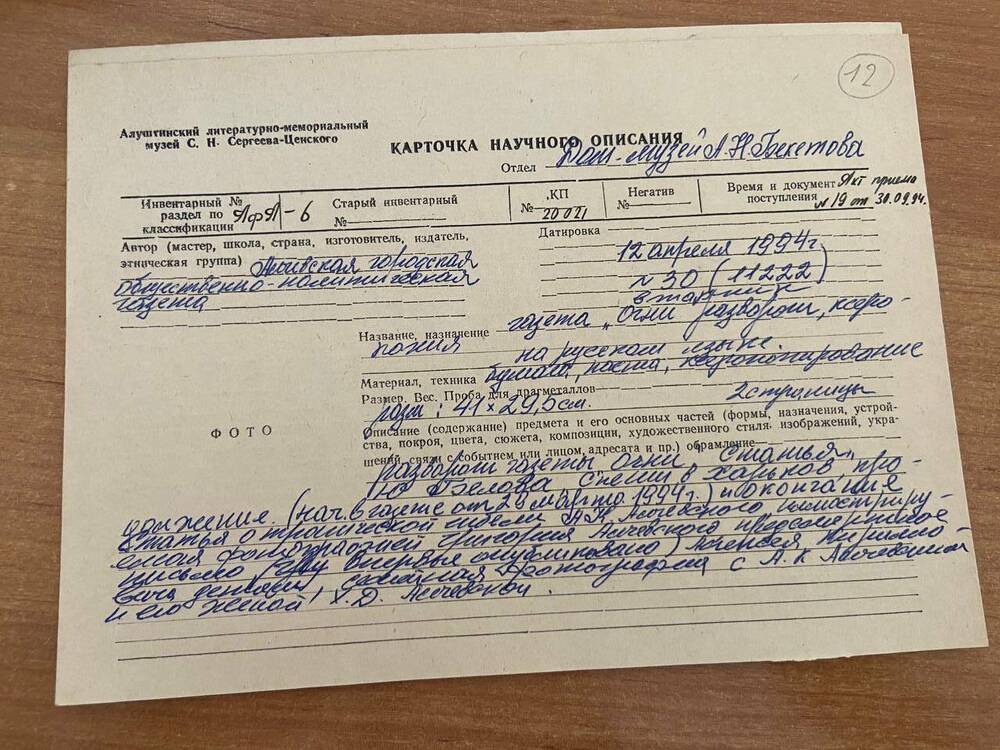 12
Алуштинский литературно-мемориальный
музей С. Н. Сергеева-Ценского
КАРТОЧКА НАУЧНОГО ОПИСАНИЯ
Отдел Дом-музей А.Н. Бекетова
Инвентарный №
раздел по
классификации АфА-6
Старый инвентарный
№
КП
№ 20021
Негатив
№
Время и документ Акт приема
поступления № 19 от 30.09.94.
Автор (мастер, школа, страна, изготовитель, издатель,
этническая группа) Алчевская городская
общественно-политическая
газета
Датировка
12 апреля 1994г.
№ 30 (11222)
вторник
Название, назначение газета "Огни разворот, ксеро-
копия на русском языке.
Материал, техника бумага, паста, ксерокопирование
Размер. Вес. Проба для драгметаллов
разм: 41×29,5см. 2 страницы
ФОТО
Описание (содержание) предмета и его основных частей (формы, назначения, устрой-
ства, покроя, цвета, сюжета, композиции, художественного стиля, изображений, укра-
шений, связи с событием или лицом, адресата и пр.) обрамление
разворот газеты Огни, статья
Ю Белова в Харьков про-
должение. (нач. в газете от 29 марта 1994г.) и окончание
статья о трагической гибели Алчевского иллюстриру-
емая фотографией Григория Алчевского предсмертное
письмо впервые опубликовано) Алексея Кирилло-
вича семейная фотография с А.К Алчевским
и его женой, Х.Д. Алчевской.